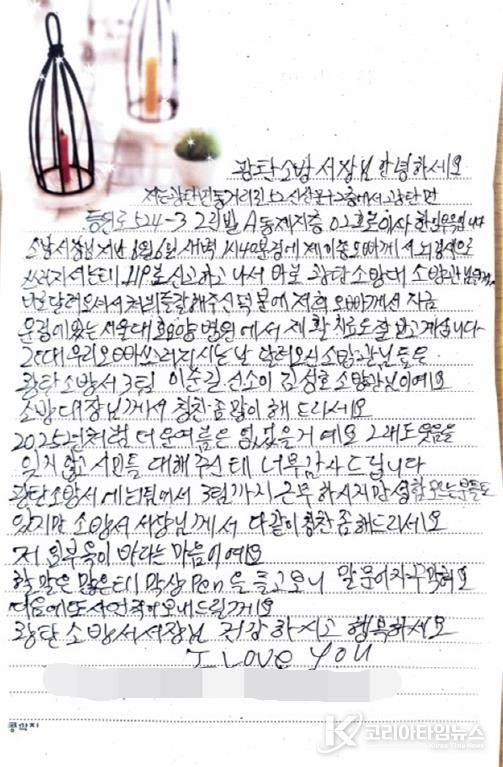 광탄소방서장님 안녕하세요
저는 광탄면
등원로 524-3 2층빌 A동 제지층 02호로 이사 한
소방서장님 지난 8월 6일 새벽 1시 40분경에 제 오빠께서 뇌경색으로
쓰러지셨는데 119로 신고하고 나서 바로 광탄소방대 소방관님
달려오셔서 처치를 잘해주신 덕분에 저희 오빠께서 지금
운정에 있는 서울대효요양병원에서 재활치료도 잘 받고 계십니다
그런데 우리오빠 쓰러지시는 날 달려오신 소방관님들은
광탄소방서 3팀 이준길 선소이 김성호 소방관님이예요
소방대장님께서 칭찬 좀 많이 해 드리세요
2025년처럼 더운여름은 없었을거예요 그래도 웃음을
잊지 않고 시민들 대해주신데 너무 감사드립니다
광탄소방서에 1팀에서 3팀까지 근무하시지만 성함 모르는 분들도
있지만 소방서 서장님께서 다같이 칭찬 좀 해드리세요
저 의부욱이 바라는 마음이예요
할 말은 많은데 막상 Pen을 들고보니 말문이 자꾸 막혀요
다음에 또 사연 적어보내드릴게요
광탄소방서서장님 건강하시고 행복하세요
I LOVE YOU
콩쥐지
K 코리아타임뉴스
Korea Time News